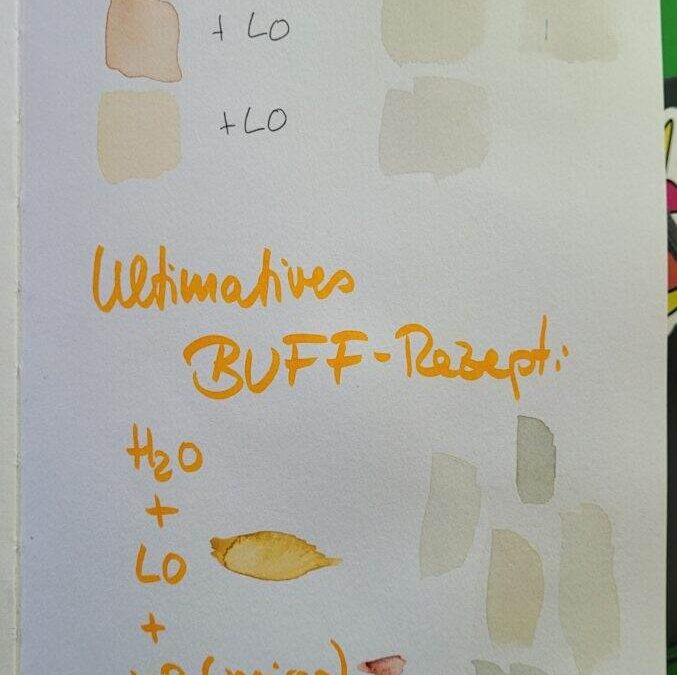 + LO
+ LO
Ultimatives
BUFF-Rezept:
H₂O
+
LO
+